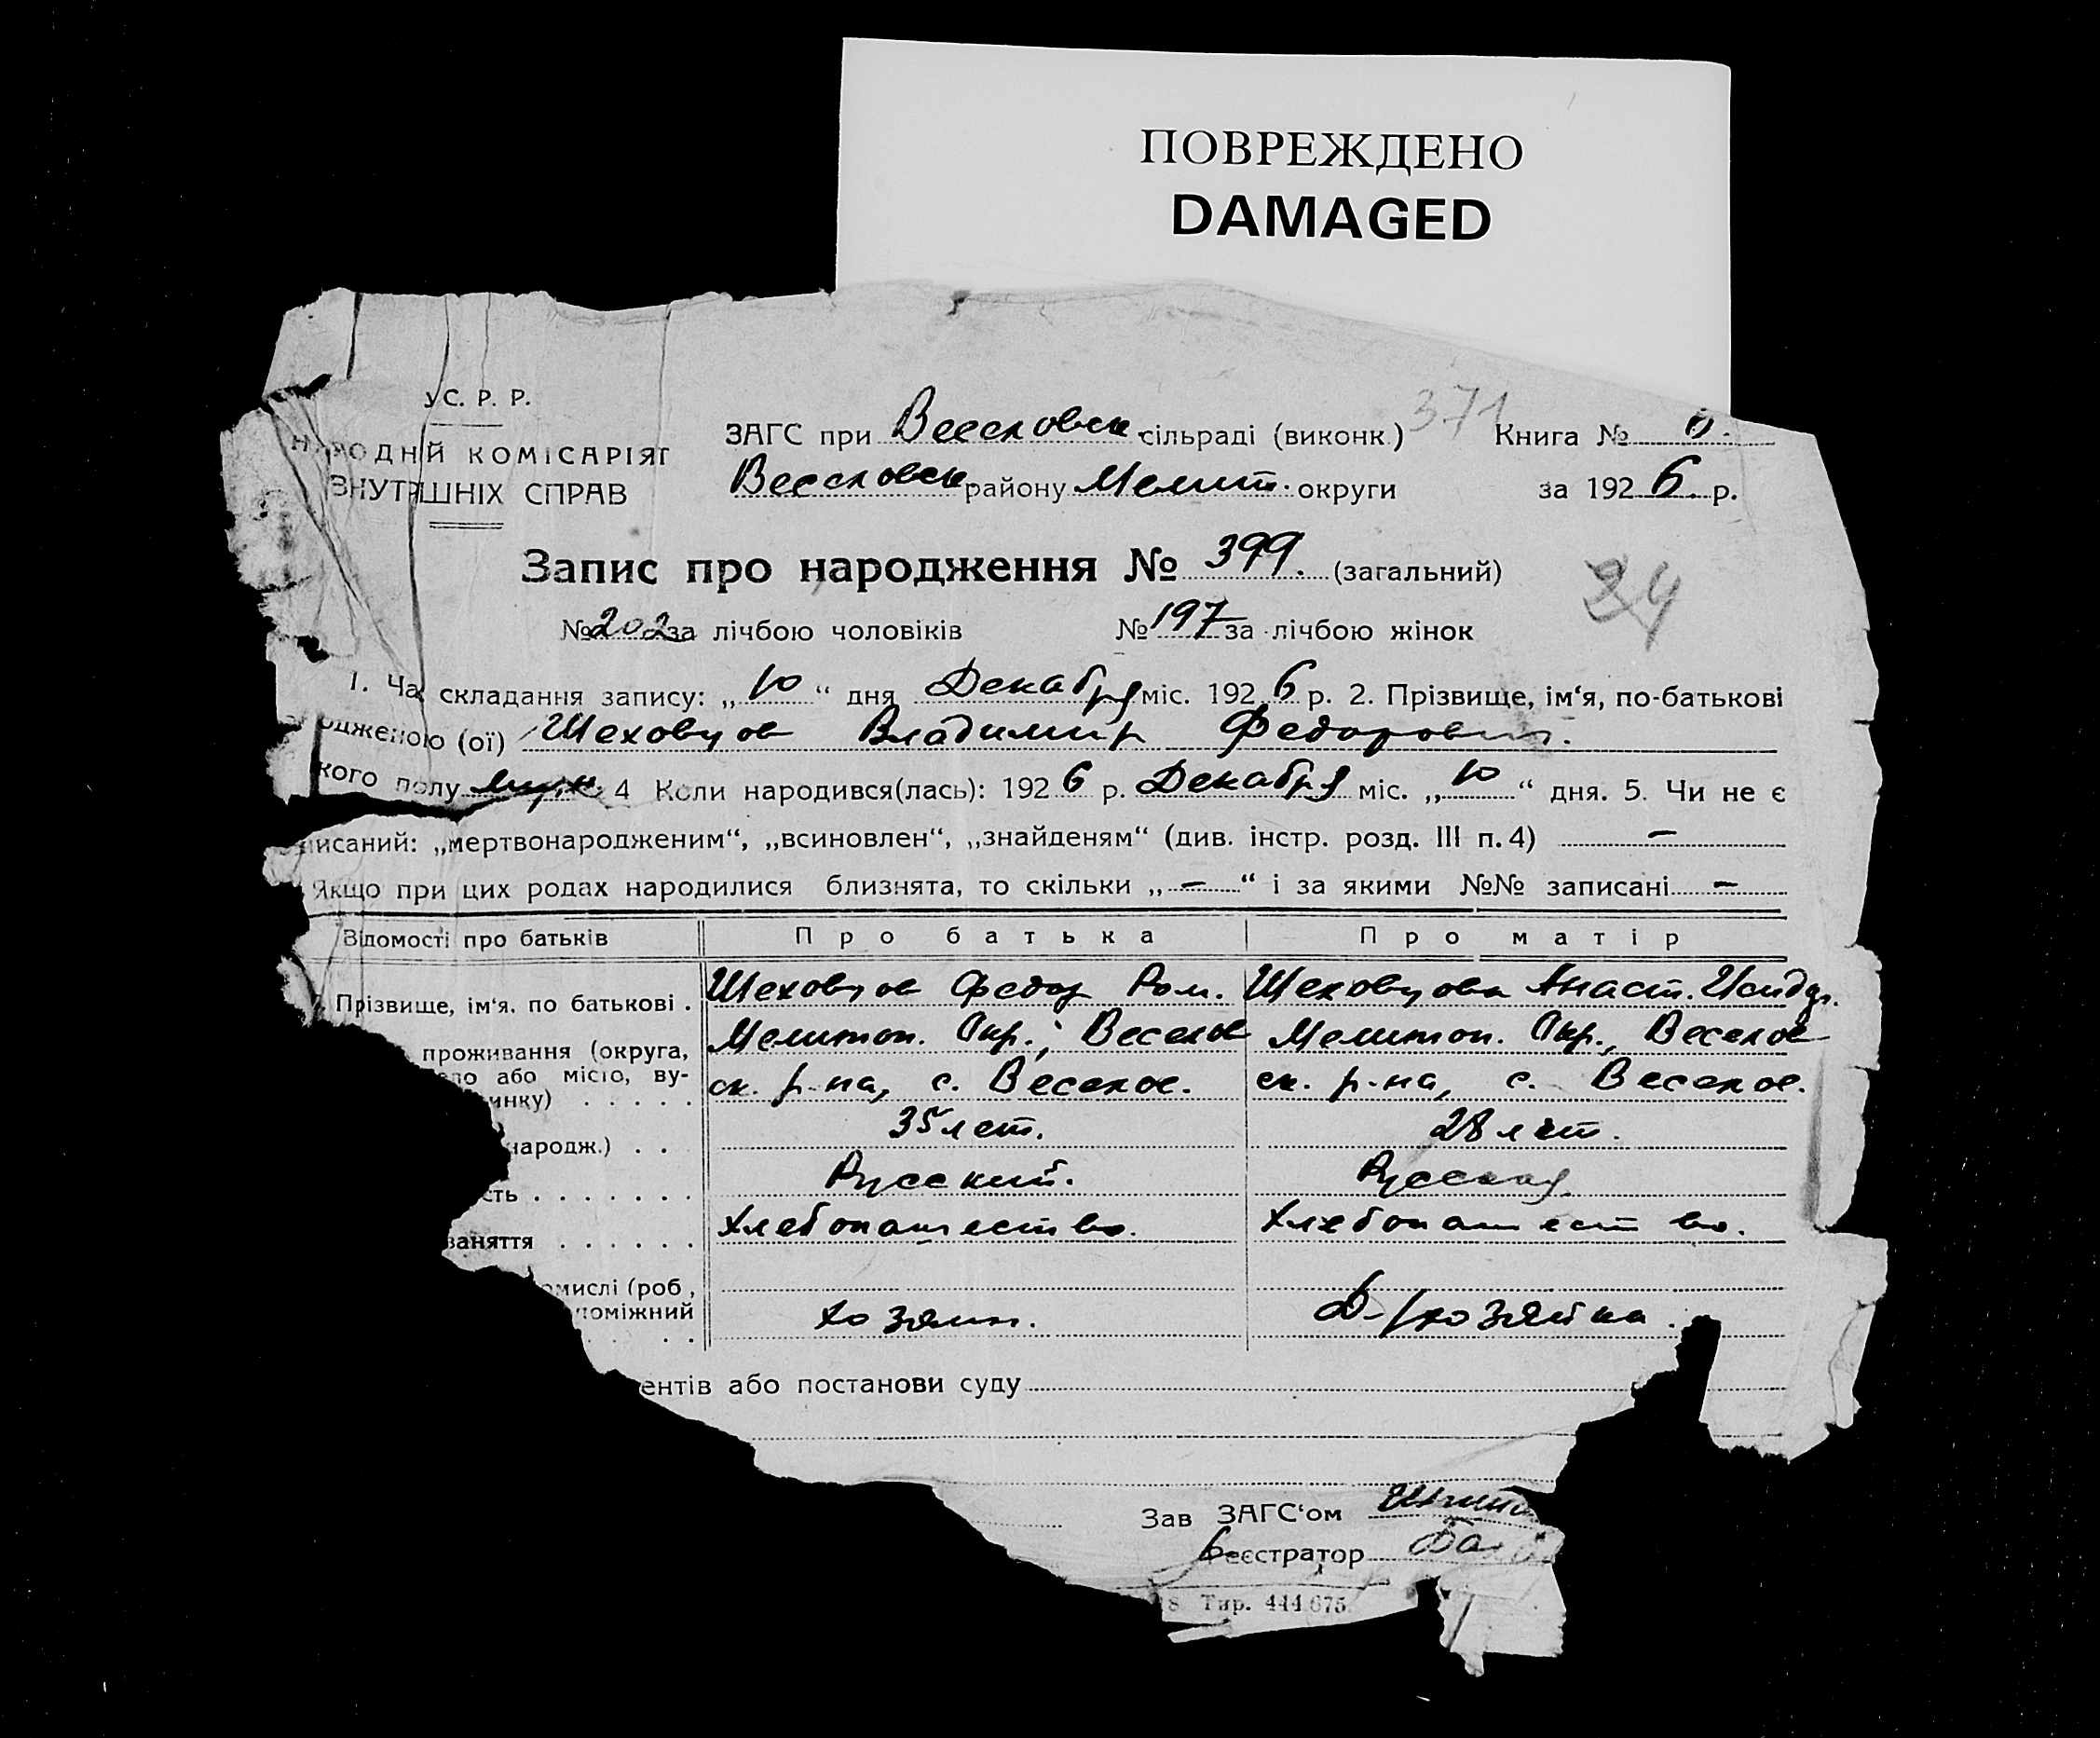 ПОВРЕЖДЕНО
DAMAGED
УС. Р. Р.
НАРОДНІЙ КОМІСАРІЯТ
ВНУТРІШНІХ СПРАВ
ЗАГС при Веселовск. сільраді (виконк.) 371 Книга №
Веселовск. району Мелит. округи за 1926. р.
Запис про народження № 399. (загальний)
24
№ 202 за лічбою чоловіків № 197 за лічбою жінок
1. Час складання запису: „10“ дня Декабря міс. 1926 р. 2. Прізвище, ім‘я, по-батькові
одженою (ої) Шеховцов Владимир Федорович.
кого полу муж. 4 Коли народився(лась): 1926 р. Декабря міс. „10“ дня. 5. Чи не є
писаний: „мертвонародженим“, „всиновлен“, „знайденям“ (див. інстр. розд. III п. 4) —
Якщо при цих родах народилися близнята, то скільки „—“ і за якими №№ записані —
Відомості про батьків Про батька Про матір
Прізвище, ім‘я. по батькові . Шеховцов Федор Ром. Шеховцова Анаст. Исидор.
проживання (округа, Мелитоп. Окр., Веселов Мелитоп. Окр., Веселов
ело або місто, ву- ск. р-на, с. Веселое. ск. р-на, с. Веселое.
инку) . . . . .
народж.) . . 35 лет. 28 лет.
сть . . . . . . . Русский. Русская.
заняття . . . . . . Хлебопашество. Хлебопашество.
омислі (роб.,
поміжний хозяин. Д-/хозяйка.
ентів або постанови суду
Зав ЗАГС‘ом
Реєстратор
8 Тир. 444.675.